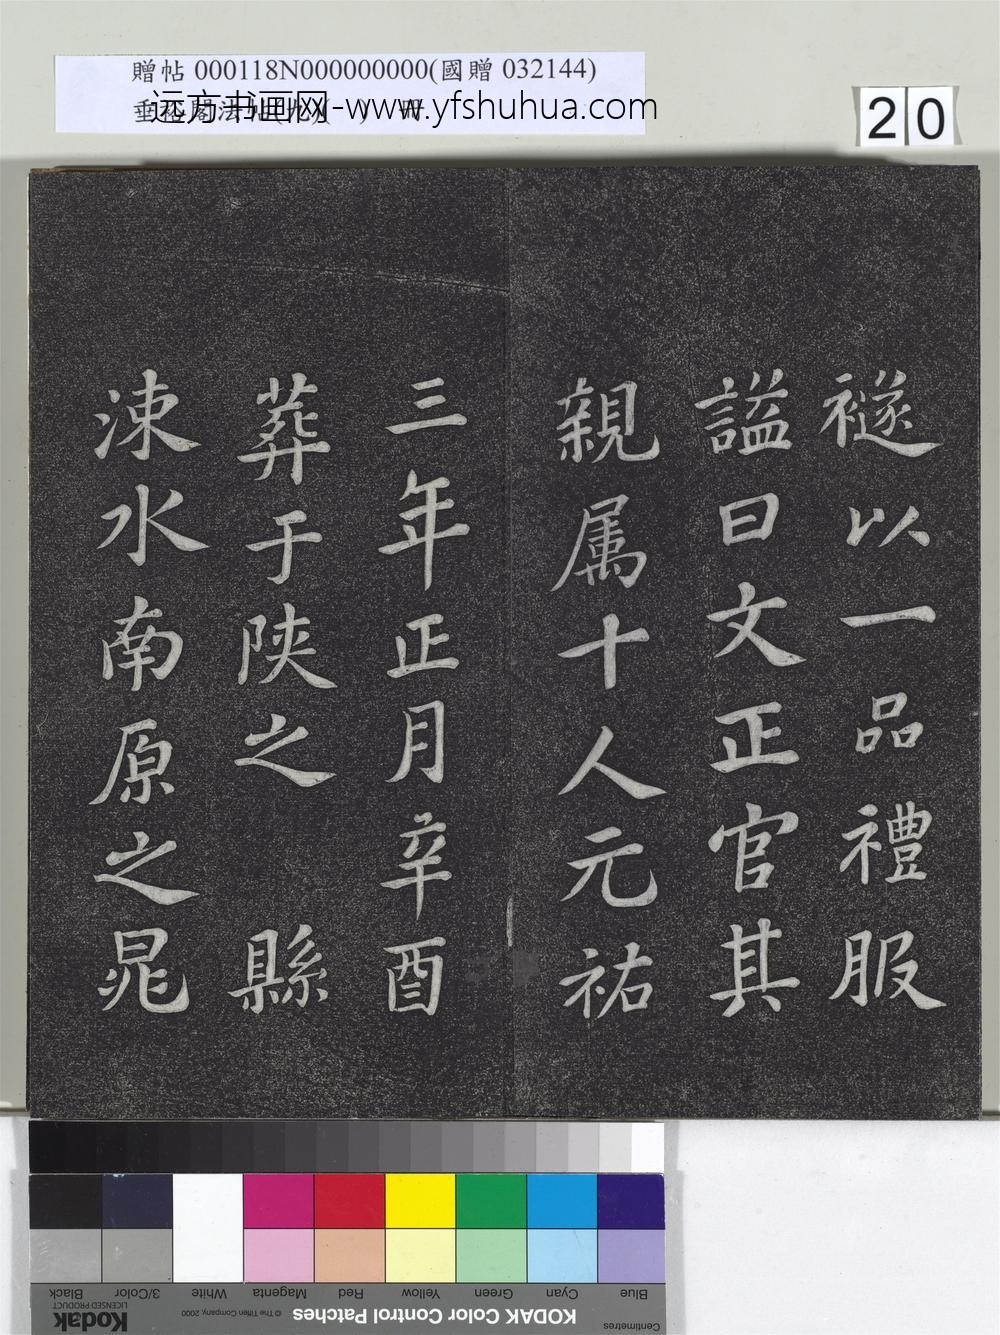 贈帖 000118N000000000(國贈 032144)
远方书画网-www.yfshuhua.com
20
襚以一品禮服
謚曰文正官其
親属十人元祐
三年正月辛酉
葬于陝之 縣
涑水南原之晁
Blue Cyan Green Yellow Red Magenta White 3/Color Black
Centimetres
KODAK Color Control Patches
© The Tiffen Company, 2000
Kodak
LICENSED PRODUCT